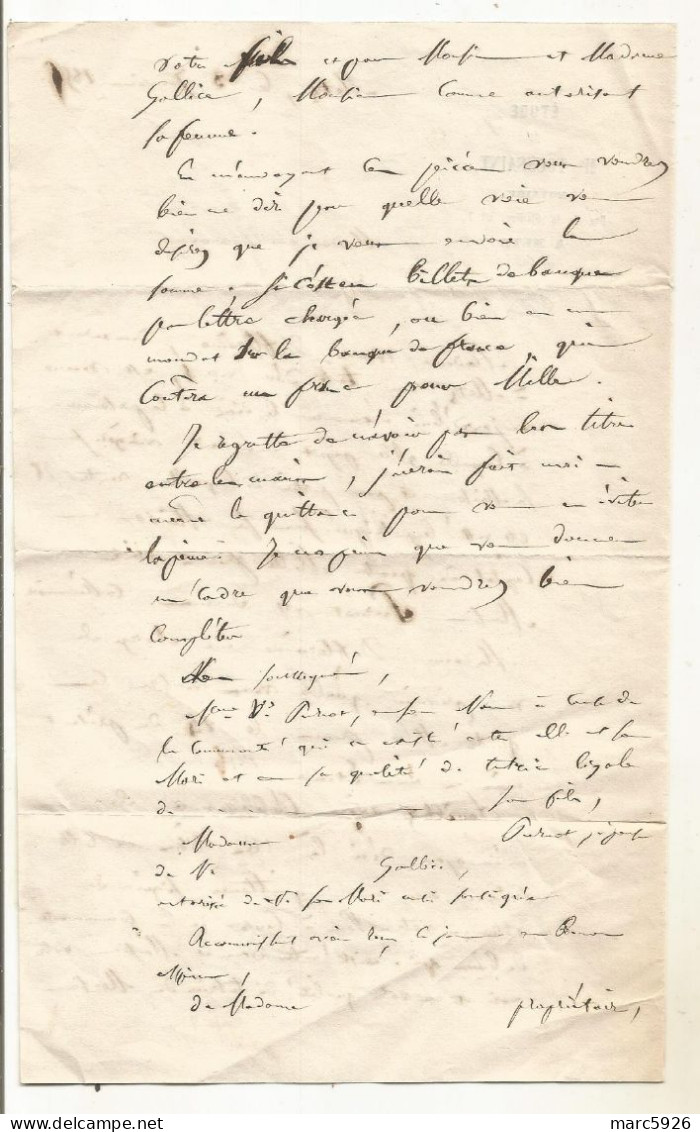 votre fils et pour Monsieur et Madame
Gallice, Monsieur comme autorisant
sa femme.
En m'envoyant ces pièces vous voudrez
bien me dire par quelle voie vous
désirez que je vous envoie la
somme. Si c'est en billets de banque
par lettre chargée, ou bien en un
mandat sur la banque de france qui
coûtera un franc pour Mille.
Je regrette de n'avoir pas leur titre
entre les mains, j'aurais fait moi-
même la quittance pour vous en éviter
la peine. Je me permets que vous donner
un cadre que vous voudrez bien
compléter
Les soussignés,
Mme Ve Purnot, en son Nom à cause de
la communauté qui a existé entre elle et son
Mari et en sa qualité de tutrice légale
de son fils,
Madame Purnot
de Gallice,
autorisée de son Mari aussi soussigné
Reconnaissent avoir reçu ce jour
de Madame propriétaire,
marc5926